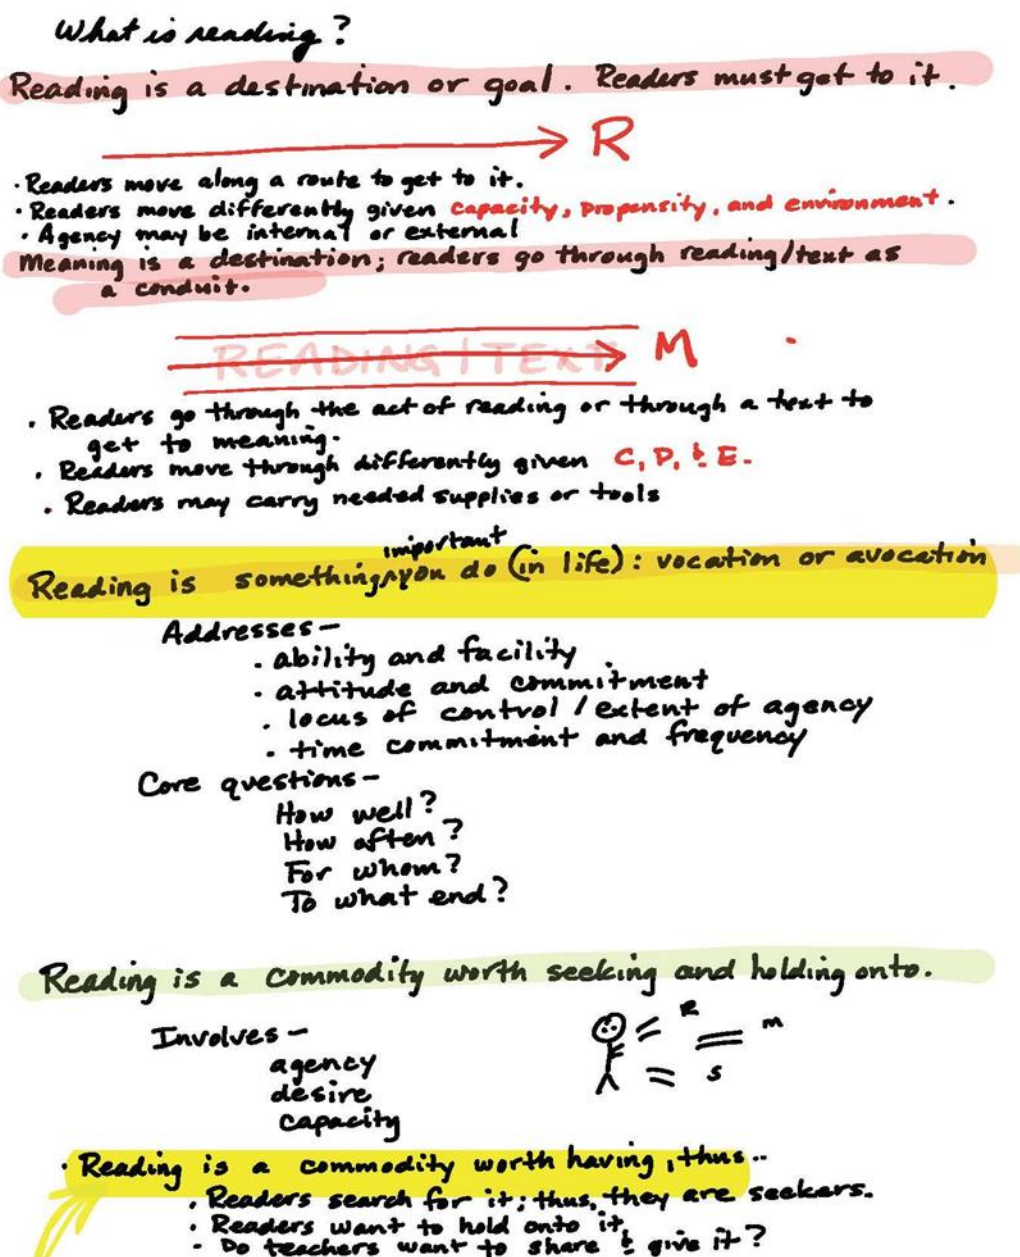 What is reading?
Reading is a destination or goal. Readers must get to it.
R
· Readers move along a route to get to it.
· Readers move differently given capacity, propensity, and environment.
· Agency may be internal or external
Meaning is a destination; readers go through reading/text as
a conduit.
READING/TEXT M
· Readers go through the act of reading or through a text to
get to meaning.
· Readers move through differently given C, P, & E.
· Readers may carry needed supplies or tools
important
Reading is something you do (in life): vocation or avocation
Addresses—
· ability and facility
· attitude and commitment
· locus of control / extent of agency
· time commitment and frequency
Core questions—
How well?
How often?
For whom?
To what end?
Reading is a commodity worth seeking and holding onto.
Involves—
agency
desire
capacity
R
M
S
· Reading is a commodity worth having, thus..
· Readers search for it; thus, they are seekers.
· Readers want to hold onto it.
· Do teachers want to share & give it?